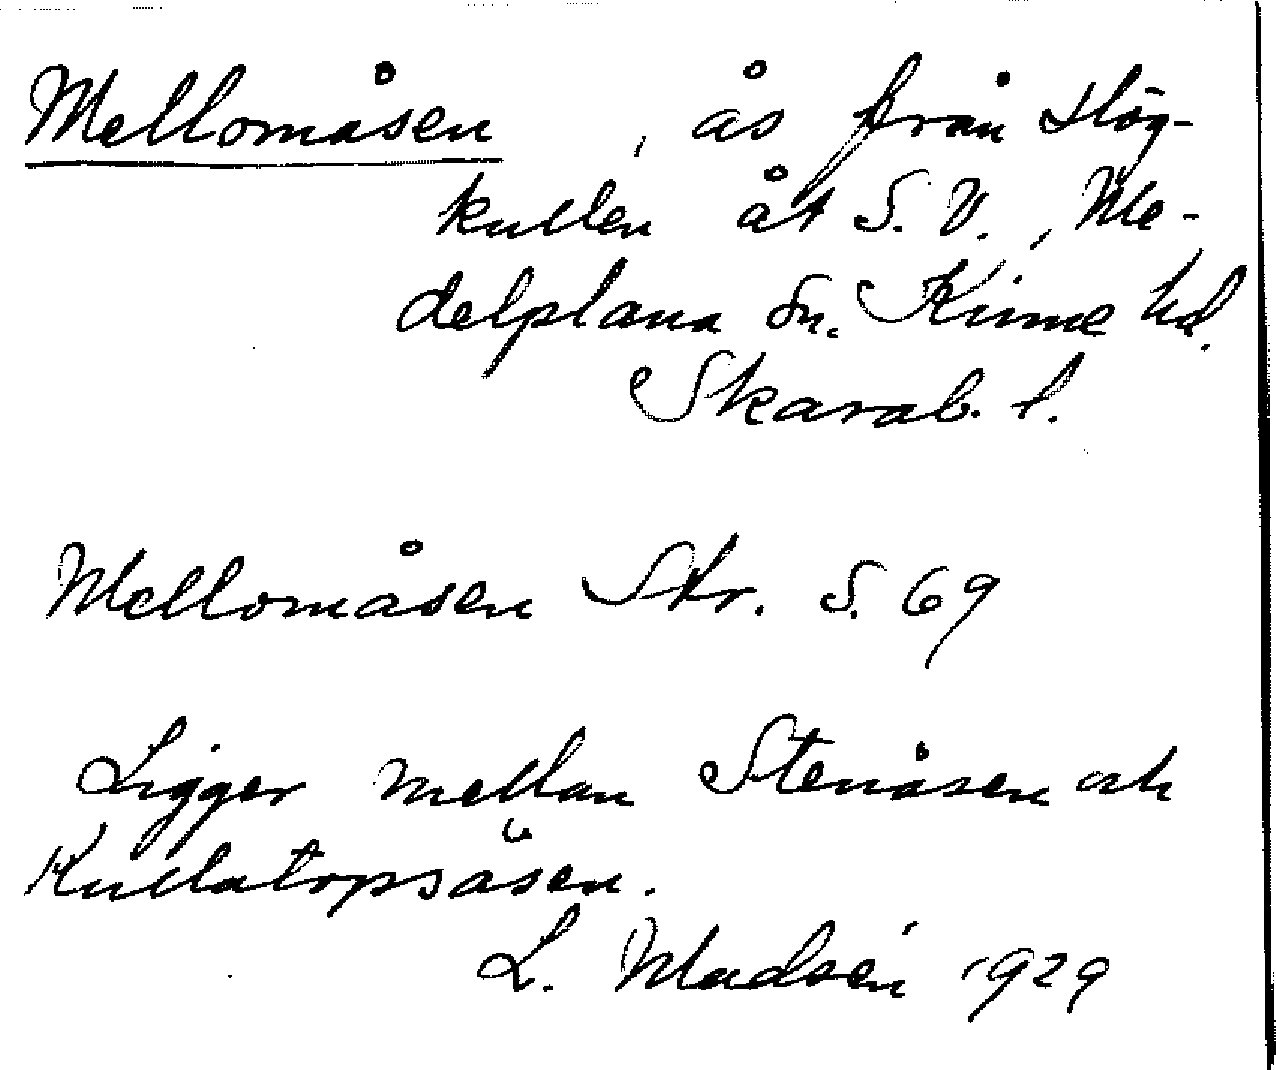 Mellomåsen, ås från Hög-
kullen åt S.V., Me-
delplana Sn. Kinne hd.
Skarab. l.
Mellomåsen Skr. S. 69
Ligger mellan Stenåsen och
Kullatorpsåsen.
L. Madsén 1929